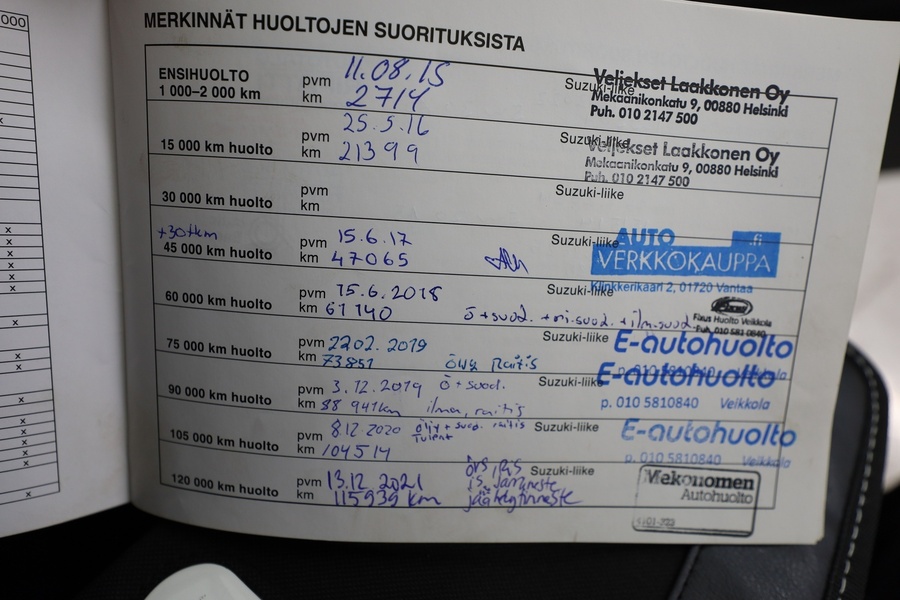 000
MERKINNÄT HUOLTOJEN SUORITUKSISTA
ENSIHUOLTO
1 000–2 000 km
pvm 11.08.15
km 2714
Suzuki-liike
Veljekset Laakkonen Oy
Mekaanikonkatu 9, 00880 Helsinki
Puh. 010 2147 500
15 000 km huolto
pvm 25.5.16
km 21399
Suzuki-liike
Veljekset Laakkonen Oy
Mekaanikonkatu 9, 00880 Helsinki
Puh. 010 2147 500
30 000 km huolto
pvm
km
Suzuki-liike
+30tkm
45 000 km huolto
pvm 15.6.17
km 47065
Suzuki-liike
AUTO .fi
VERKKOKAUPPA
Klinkkerikaari 2, 01720 Vantaa
60 000 km huolto
pvm 15.6.2018
km 61140
Suzuki-liike
ö+suod. +rai.suod. +ilm.suod.
Fixus Huolto Veikkola
Puh. 010 581 0840
75 000 km huolto
pvm 22.02.2019
km 73851
öljy Raitis
Suzuki-liike
E-autohuolto
p. 010 5810840 Veikkola
90 000 km huolto
pvm 3.12.2019 ö+suod.
km 88 941km ilma, raitis
Suzuki-liike
E-autohuolto
p. 010 5810840 Veikkola
105 000 km huolto
pvm 8.12.2020 öljy+suod. raitis
km 104514
Suzuki-liike
E-autohuolto
p. 010 5810840 Veikkola
120 000 km huolto
pvm 13.12.2021
km 115939 km
Suzuki-liike
jäähdytinneste
Mekonomen
Autohuolto